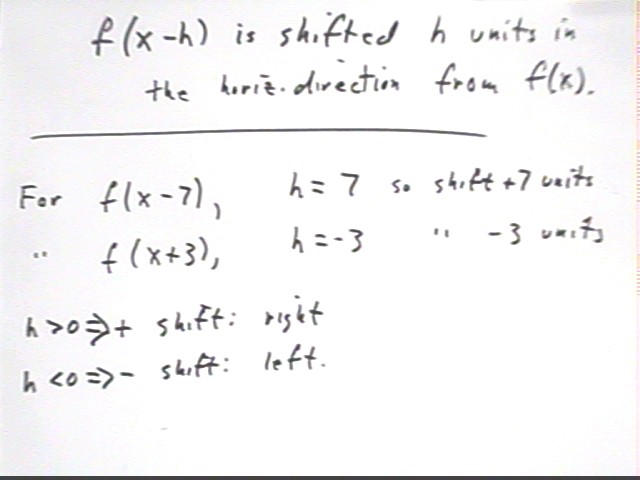 f(x-h) is shifted h units in
the horiz. direction from f(x).
For f(x-7), h = 7 so shift +7 units
" f(x+3), h = -3 " -3 units
h>0 => + shift: right
h<0 => - shift: left.